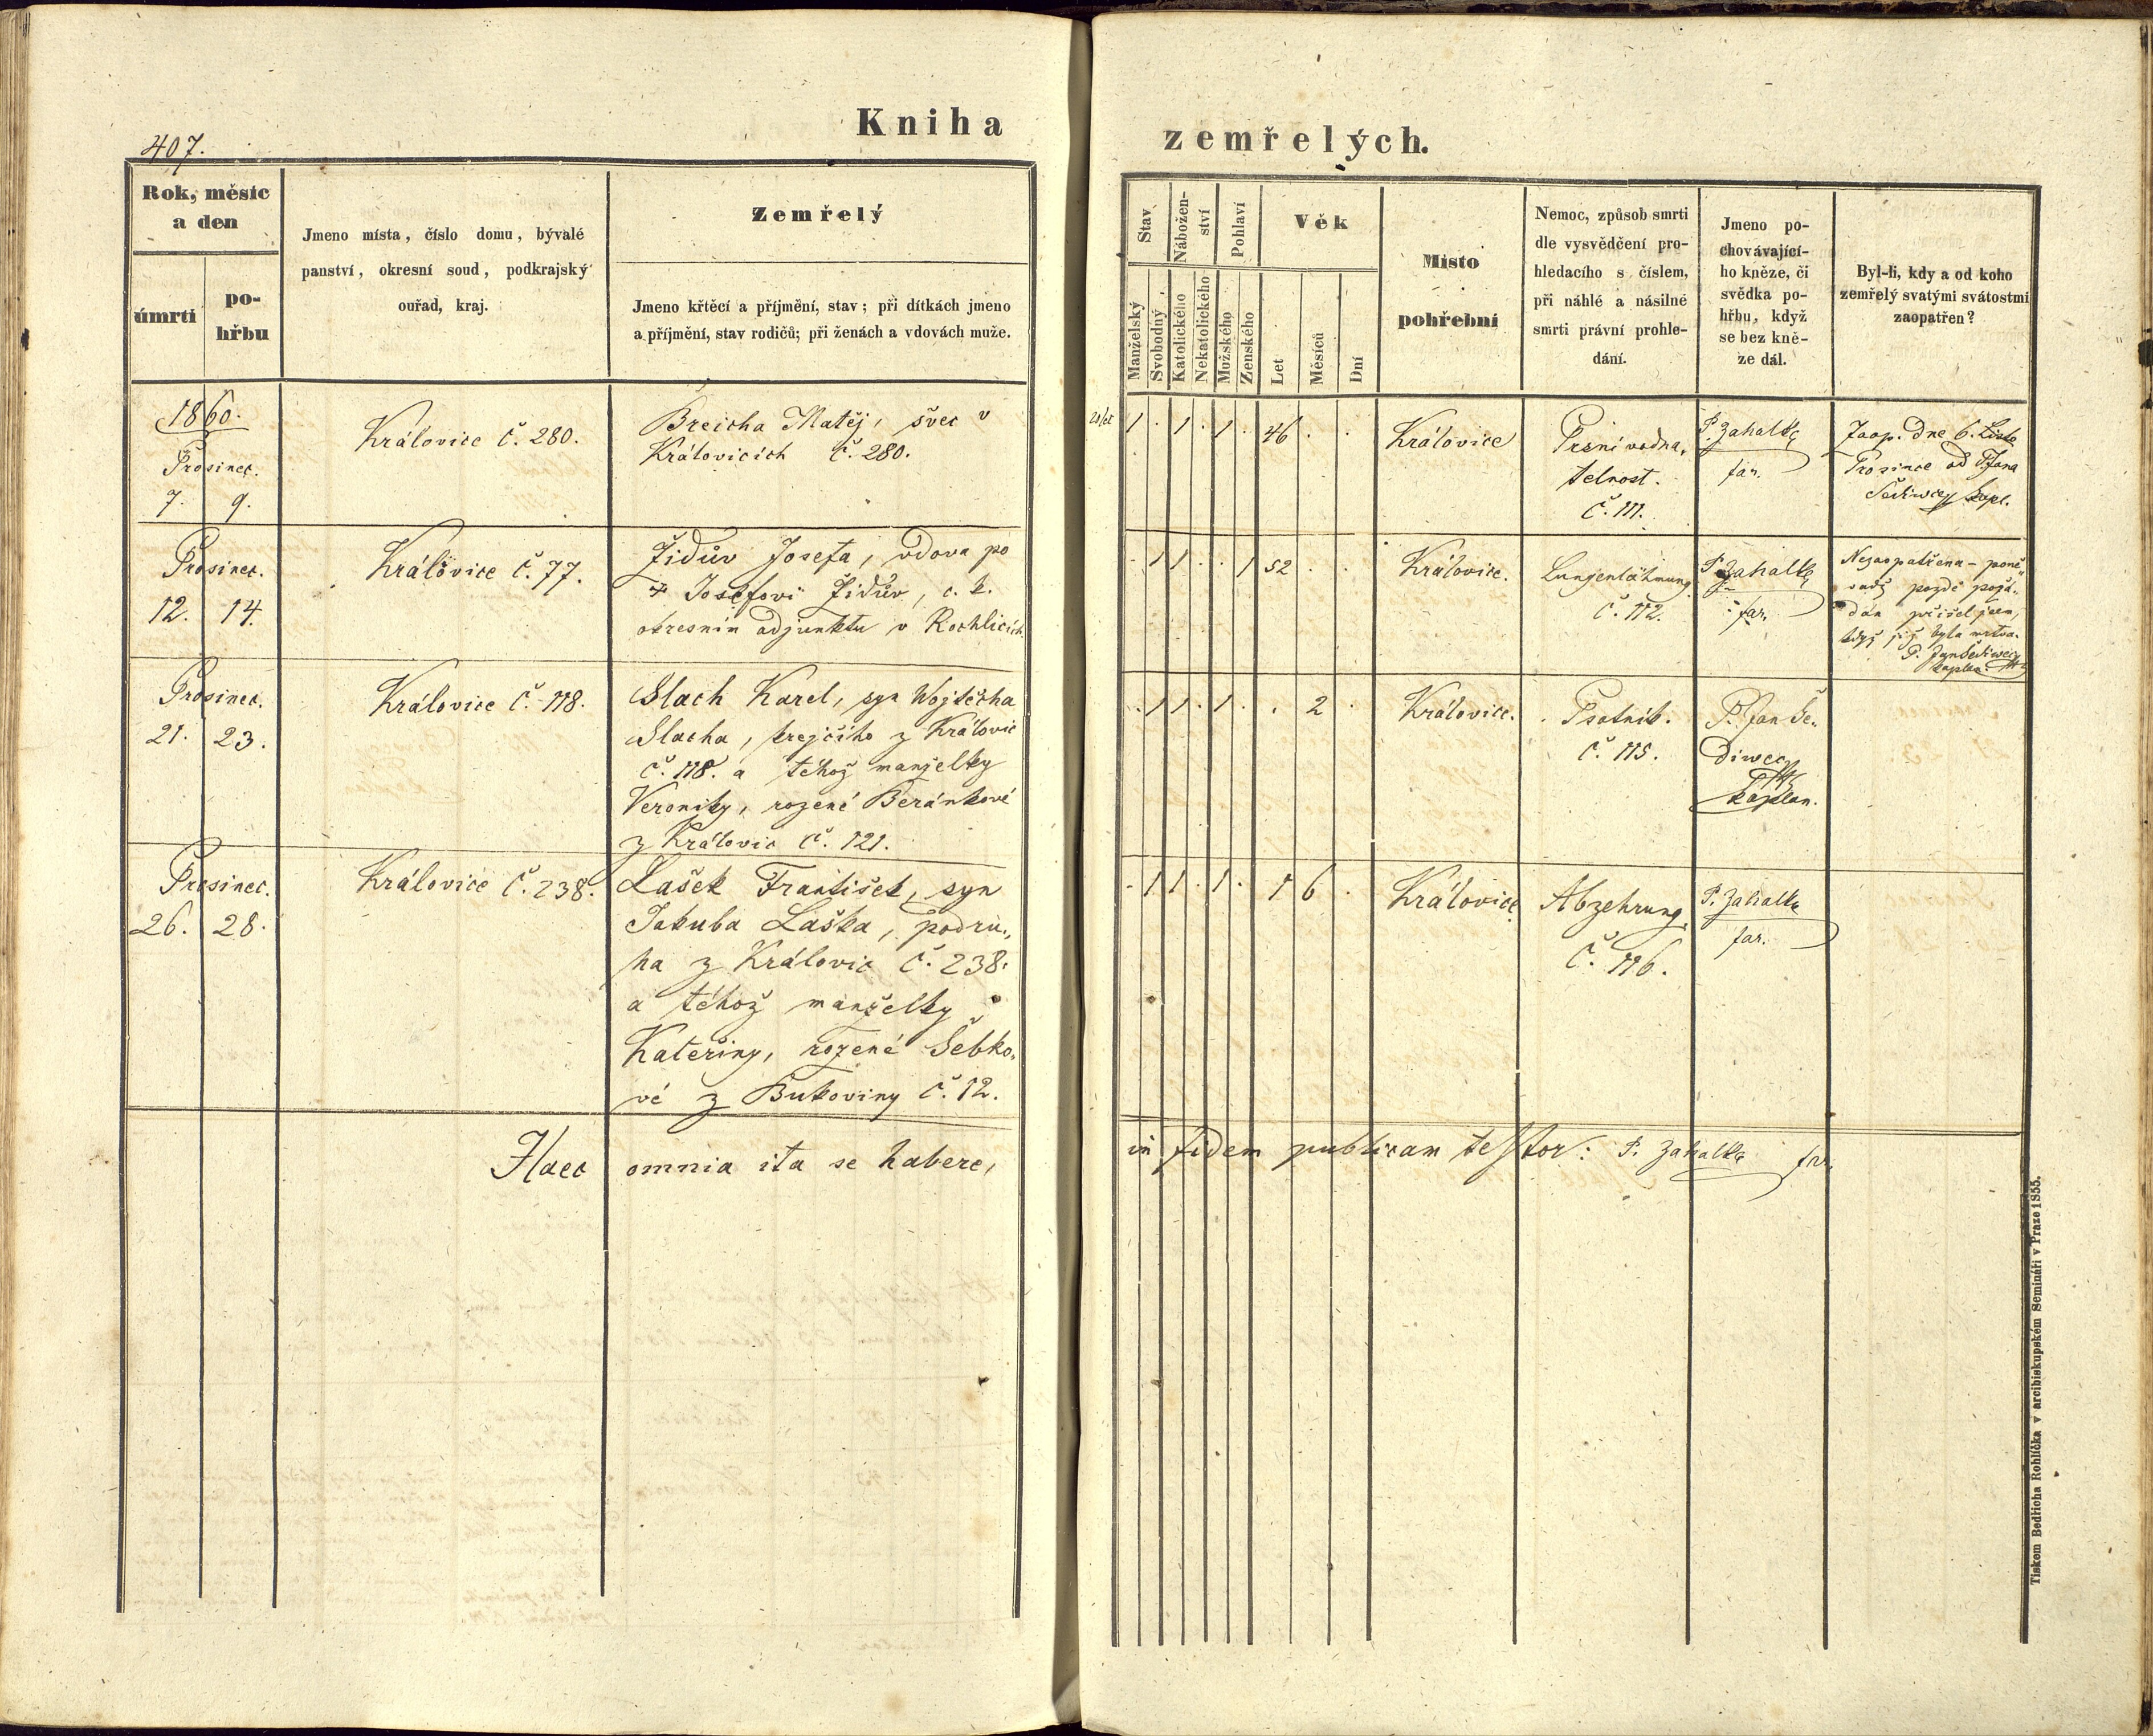 407.
Kniha
Rok, měsíc
a den
úmrtí
po-
hřbu
Jmeno místa, číslo domu, bývalé
panství, okresní soud, podkrajský
ouřad, kraj.
Zemřelý
Jmeno křtěcí a příjmění, stav; při dítkách jmeno
a příjmění, stav rodičů; při ženách a vdovách muže.
1860.
Prosinec.
7. 9.
Královice č. 280.
Breicha Matěj, švec v
Královicích č. 280.
Prosinec.
12. 14.
Královice č. 77.
Židův Josefa, vdova po
+ Josefovi Židův, c. k.
okresním adjunktu v Rochlicích.
Prosinec.
21. 23.
Královice č. 118.
Slach Karel, syn Wojtěcha
Slacha, krejčího z Královic
č. 118. a téhož manželky
Veroniky, rozené Beránkové
z Královic č. 121.
Prosinec.
26. 28.
Královice č. 238.
Lašek František, syn
Jakuba Laška, podru„
ha z Královic č. 238.
a téhož manželky
Kateřiny, rozené Šebko„
vé z Bukoviny č. 12.
Haec omnia ita se habere,
zemřelých.
Stav
Nábožen-
ství
Pohlaví
Věk
Manželský
Svobodný
Katolického
Nekatolického
Mužského
Ženského
Let
Měsíců
Dní
Místo
pohřební
Nemoc, způsob smrti
dle vysvědčení pro-
hledacího s číslem,
při náhlé a násilné
smrti právní prohle-
dání.
Jmeno po-
chovávající-
ho kněze, či
svědka po-
hřbu, když
se bez kně-
ze dál.
Byl-li, kdy a od koho
zemřelý svatými svátostmi
zaopatřen?
1 . 1 . 1 . 46 . .
Královice
Prsní vodna„
telnost.
č. 111.
P. Zahalka
far.
Zaop. dne 6.
Prosince od P. Jana
Šediwey kapl.
. 1 1 . . 1 52 . .
Královice.
Lungenlähmung
č. 112.
P. Zahalka
far.
Nezaopatřena – poně„
vadž pozdě požá„
dán přišel jsem,
když již byla mrtva.
P. Jan Šediwey
kaplan
. 1 1 . 1 . . 2 .
Královice.
Psotník.
č. 115.
P. Jan Še„
diwey
kaplan.
. 1 1 . 1 . 1 6 .
Královice
Abzehrung.
č. 116.
P. Zahalka
far.
in fidem publicam testor: P. Zahalka far.
Tiskem Bedřicha Rohlíčka v arcibiskupském Semináři v Praze 1855.